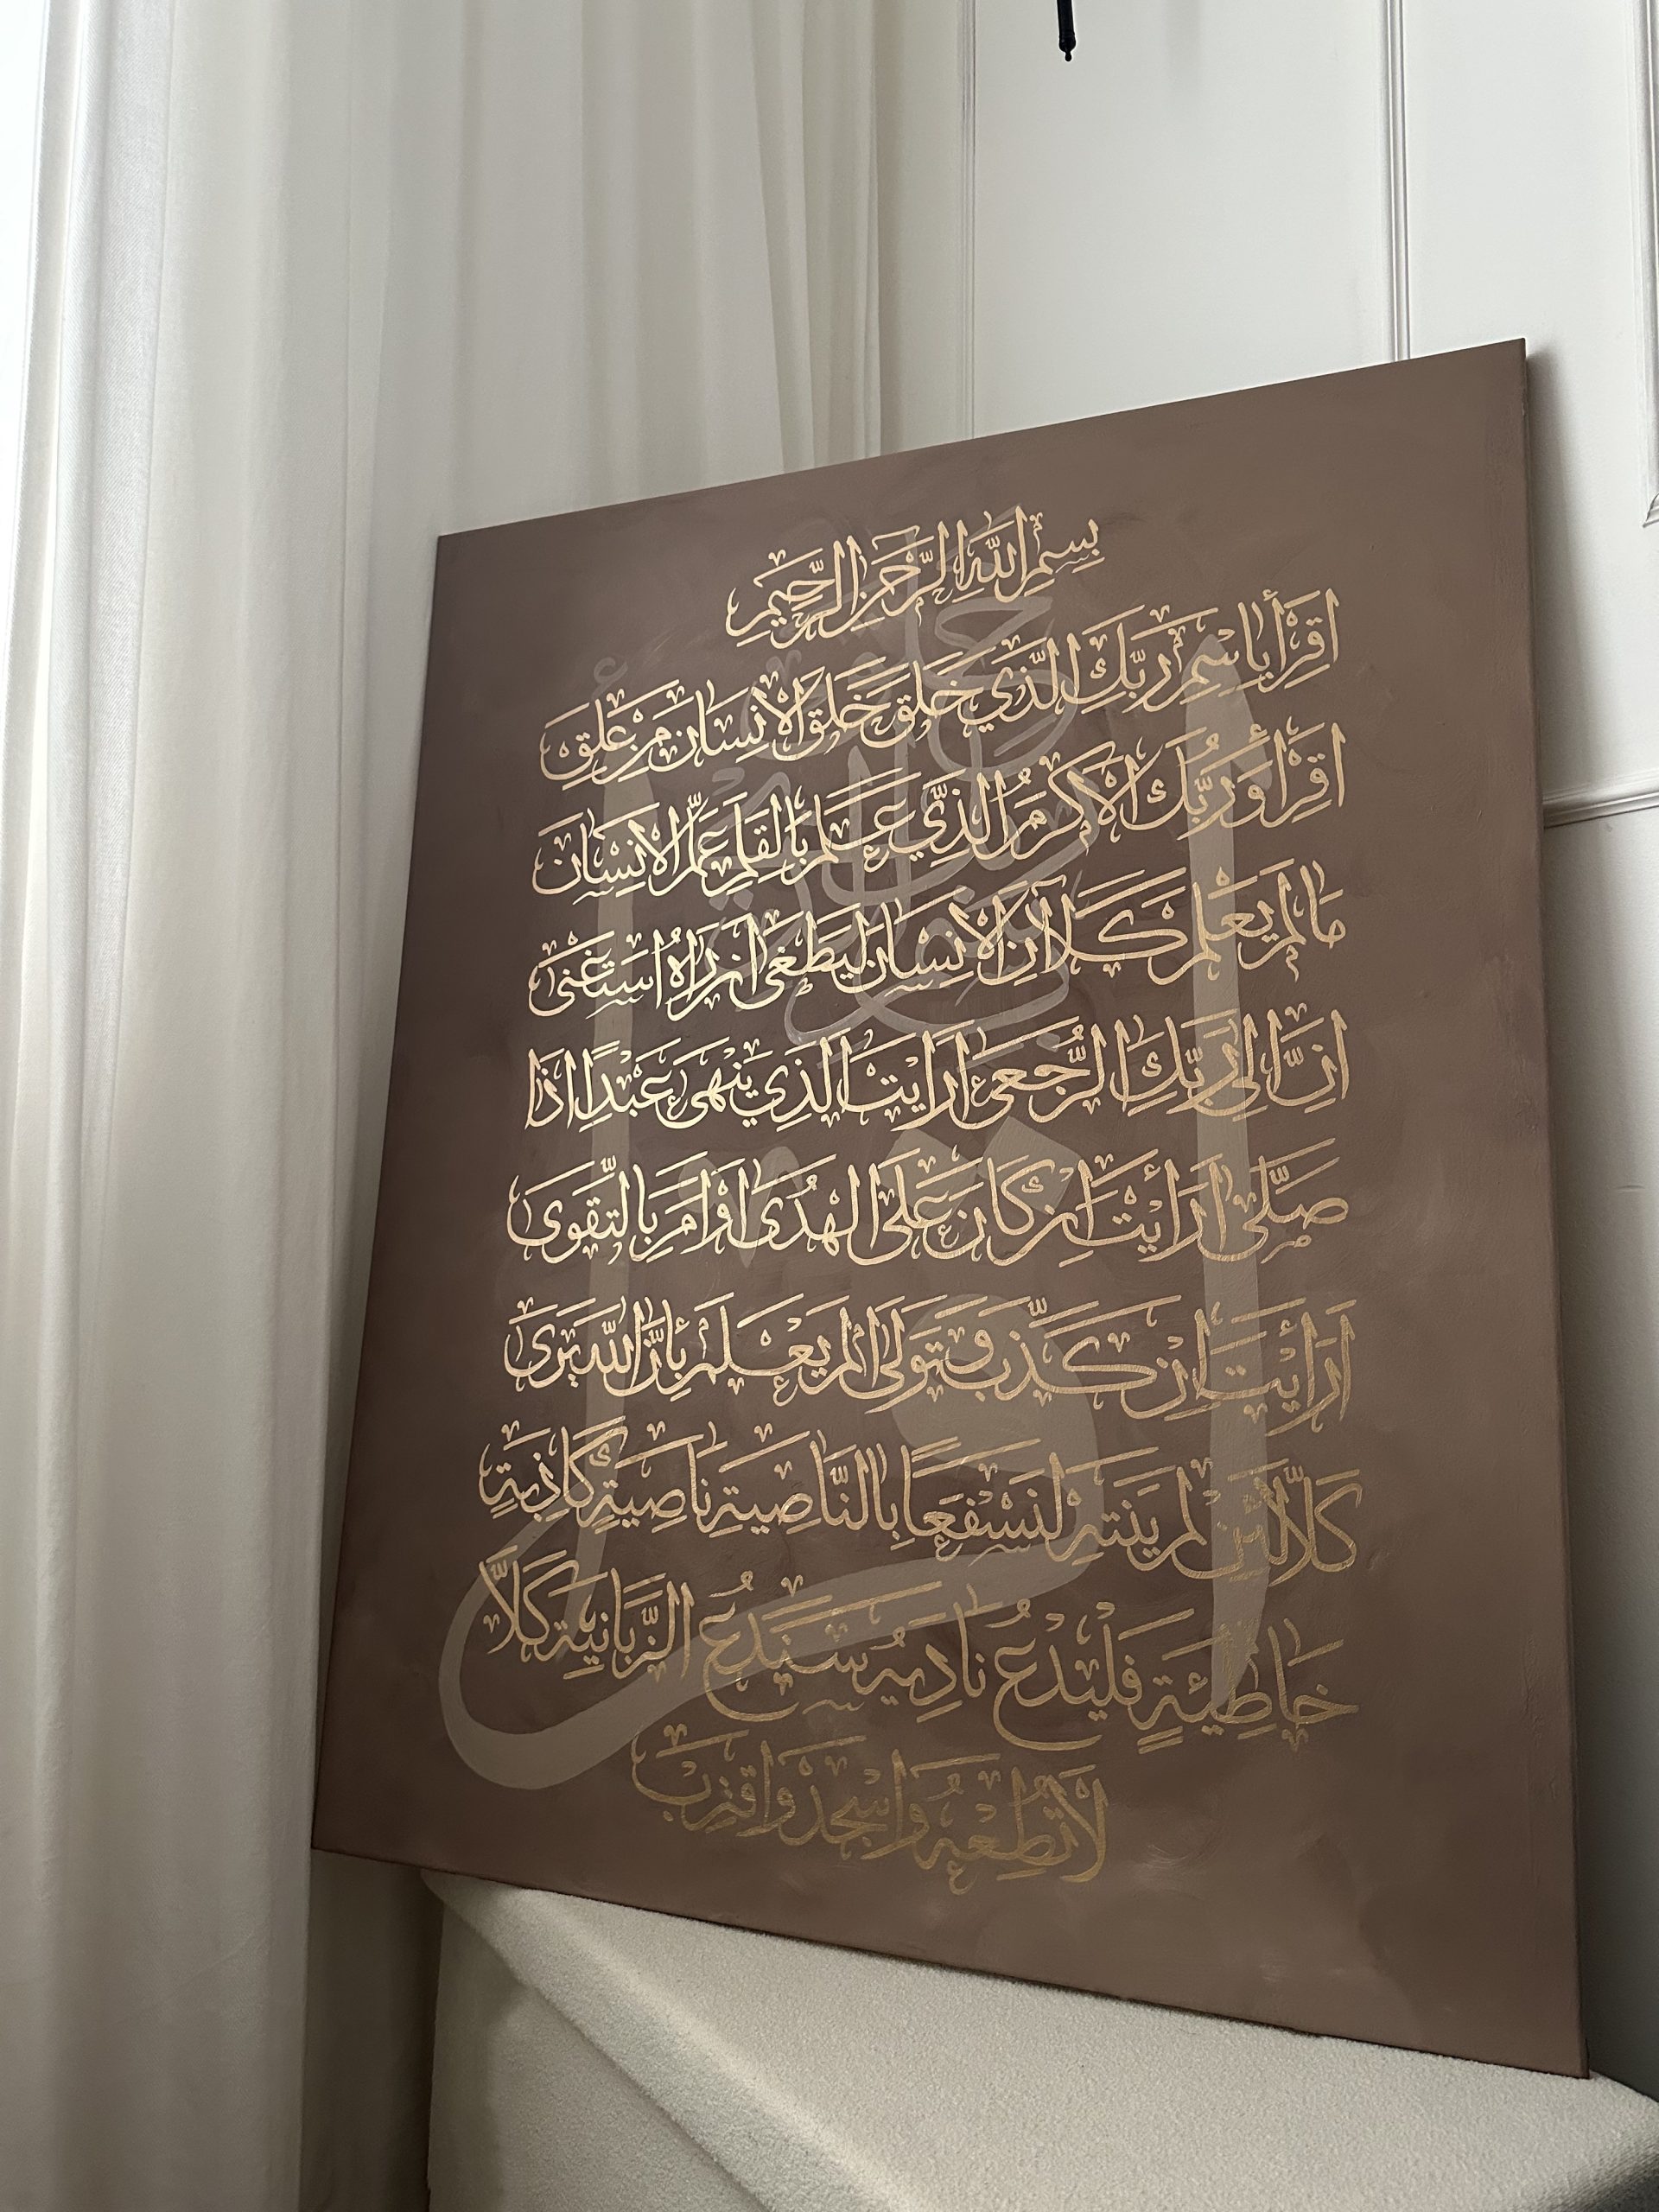 بسم الله الرحمن الرحيم
اقرأ باسم ربك الذي خلق خلق الانسان من علق
اقرأ وربك الاكرم الذي علم بالقلم علم الانسان
ما لم يعلم كلا ان الانسان ليطغى ان راه استغنى
ان الى ربك الرجعى ارايت الذي ينهى عبدا اذا
صلى ارأيت ان كان على الهدى او امر بالتقوى
ارأيت ان كذب وتولى الم يعلم بان الله يرى
كلا لئن لم ينته لنسفعا بالناصية ناصية كاذبة
خاطئة فليدع ناديه سندع الزبانية كلا
لا تطعه واسجد واقترب
اقرأ
باسم ربك الذي خلق